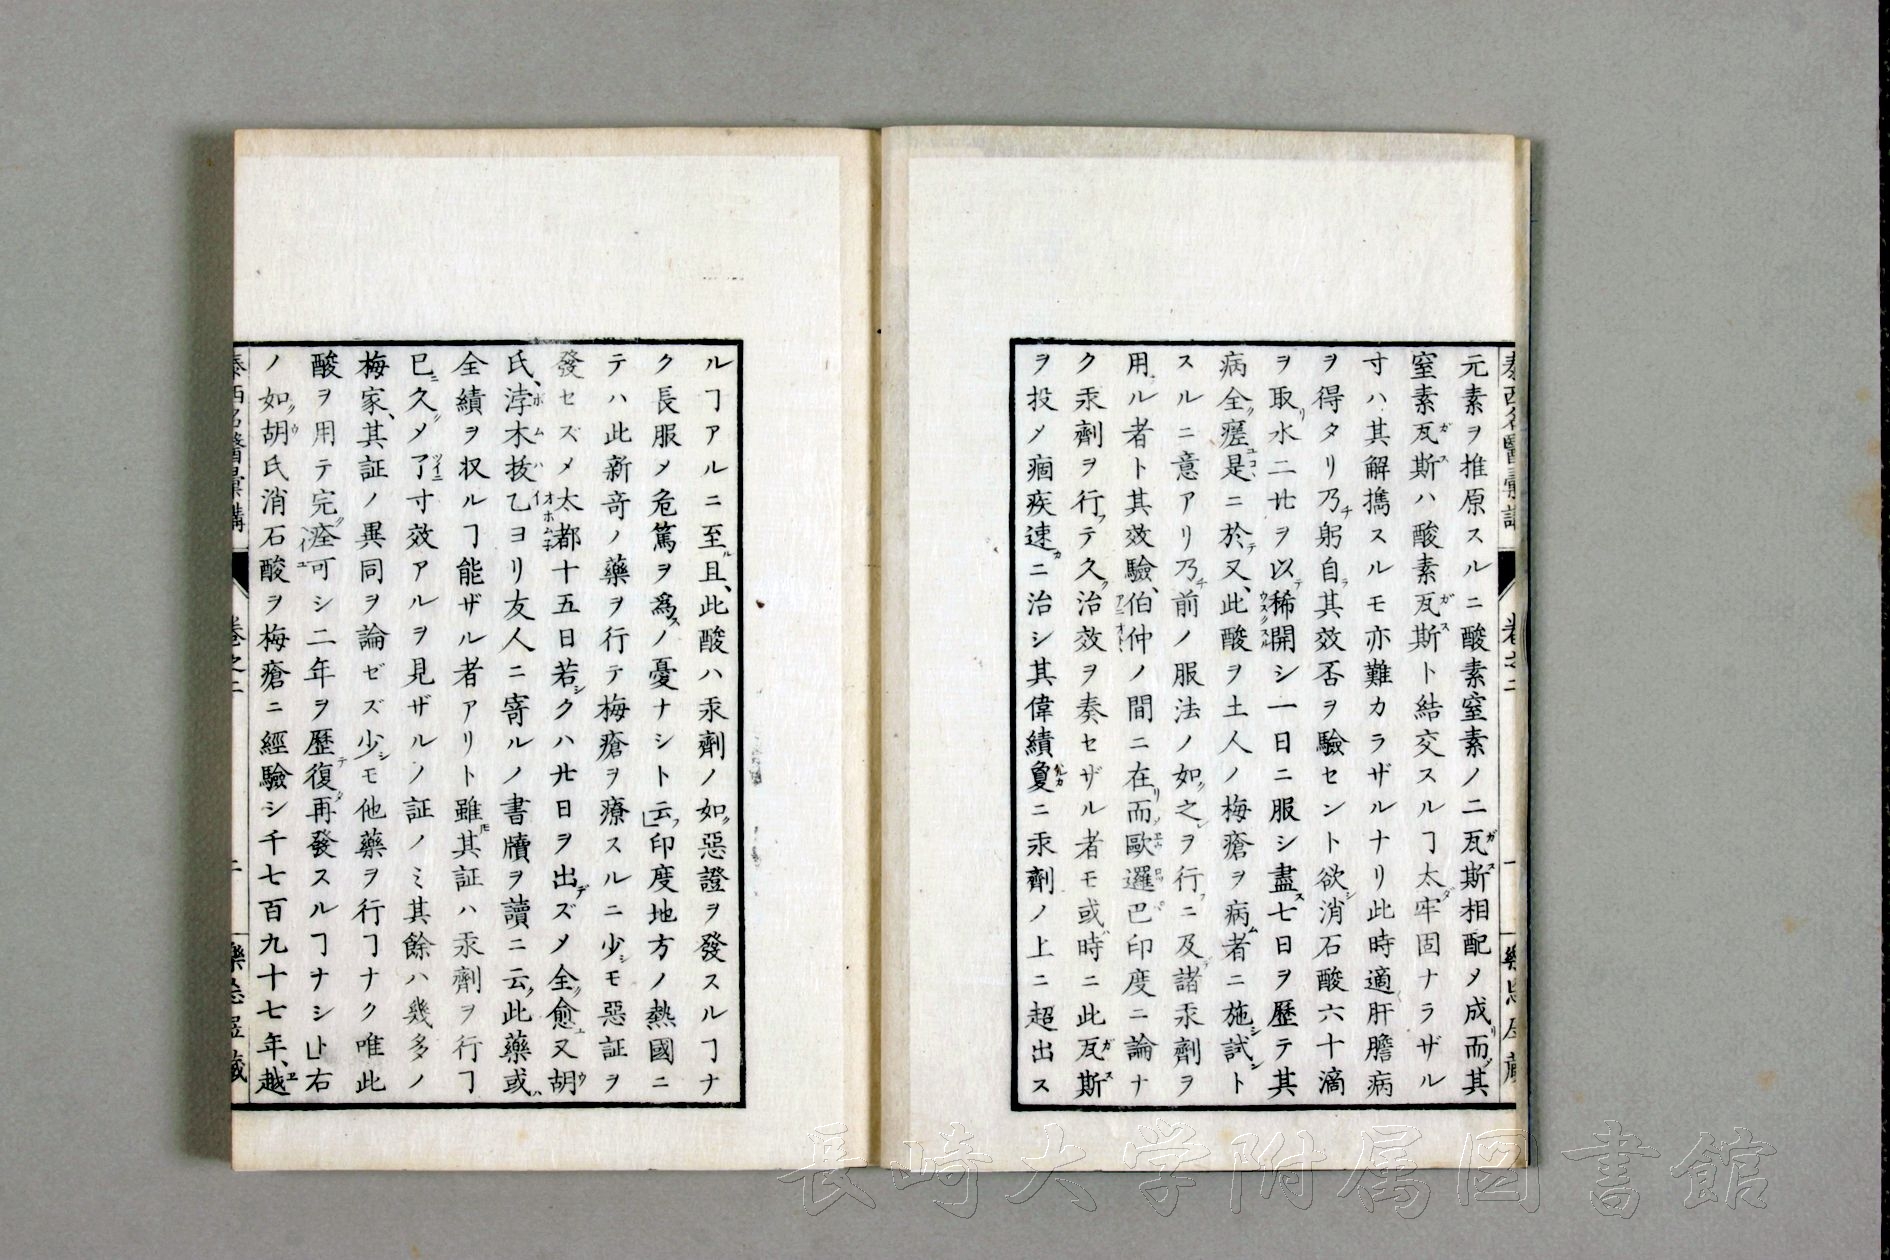 泰西名醫彙講
卷之二
一
元素ヲ推原スルニ酸素窒素ノ二瓦斯相配メ成リ而ノ其
窒素瓦斯ハ酸素瓦斯ト結交スルヿ太ダ牢固ナラザル
寸ハ其解擕スルモ亦難カラザルナリ此時適肝膽病
ヲ得タリ乃チ躬自ラ其效否ヲ驗セント欲シ消石酸六十滴
ヲ取リ水二廿ヲ以テ稀開シ一日ニ服シ盡ス七日ヲ歷テ其
病全ク瘥是ニ於テ又、此酸ヲ土人ノ梅瘡ヲ病ム者ニ施シ試ント
スルニ意アリ乃チ前ノ服法ノ如ク之ヲ行フニ及デ諸汞劑ヲ
用ル者ト其效驗、伯仲ノ間ニ在リ而ノ歐邏巴印度ニ論ナ
ク汞劑ヲ行フテ久ク治效ヲ奏セザル者モ或ハ時ニ此瓦斯
ヲ投メ痼疾速カニ治シ其偉績夐ニ汞劑ノ上ニ超出ス
ルヿアルニ至ル且、此酸ハ汞劑ノ如ク惡證ヲ發スルヿナ
ク長服メ危篤ヲ爲スノ憂ナシト云フ」印度地方ノ熱國ニ
テハ此新竒ノ藥ヲ行テ梅瘡ヲ療スルニ少シモ惡証ヲ
發セズメ太都十五日若シクハ廿日ヲ出デズメ全ク愈ユ又胡
氏、浡木抜乙ヨリ友人ニ寄ルノ書牘ヲ讀ニ云ク此藥或ハ
全績ヲ収ルヿ能ザル者アリト雖モ其証ハ汞劑ヲ行フヿ
已ニ久シメ了ニ寸效アルヲ見ザルノ証ノミ其餘ハ幾多ノ
梅家、其証ノ異同ヲ論ゼズ少シモ他藥ヲ行フヿナク唯此
酸ヲ用テ完ク痊ユ可シ二年ヲ歷テ復タ再發スルヿナシ」ト右
ノ如ク胡氏消石酸ヲ梅瘡ニ經驗シ千七百九十七年、越
泰西名醫彙講
卷之二
二
長崎大学附属図書館